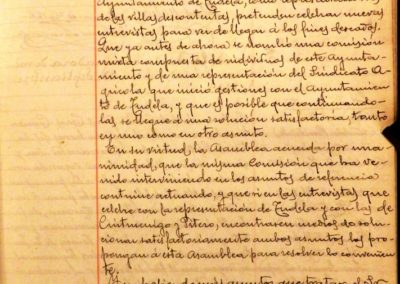 Ayuntamiento de Tudela,
de las villas descontentas, pretenden celebrar nuevas
entrevistas para ver de llegar á los fines deseados.
Que ya antes de ahora se nombró una comisión
mixta compuesta de individuos de este Ayunta-
miento y de una representación del Sindicato A-
grícola que inició gestiones con el Ayuntamien-
to de Tudela, y que es posible que continuando-
las se llegue á una solución satisfactoria, tanto
en uno como en otro asunto.
En su virtud, la Asamblea acuerda por una-
nimidad, que la misma Comisión que ha ve-
nido interviniendo en los asuntos de referencia
continúe actuando, y que si en las entrevistas que
celebre con la representación de Tudela y con las de
Cintruénigo y Fitero, encontraren medios de solu-
cionar satisfactoriamente ambos asuntos los pro-
pongan á esta Asamblea para resolver lo convenien-
te.
asuntos que tratar